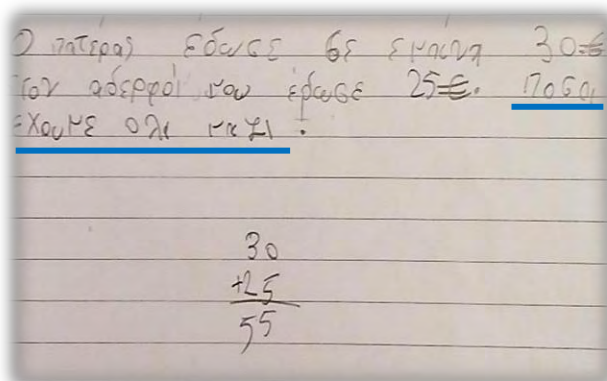 Ο πατέρας έδωσε σε εμένα 30€
τον αδερφό μου έδωσε 25€. Πόσα
έχουμε όλι μαζι ;
30
+25
55